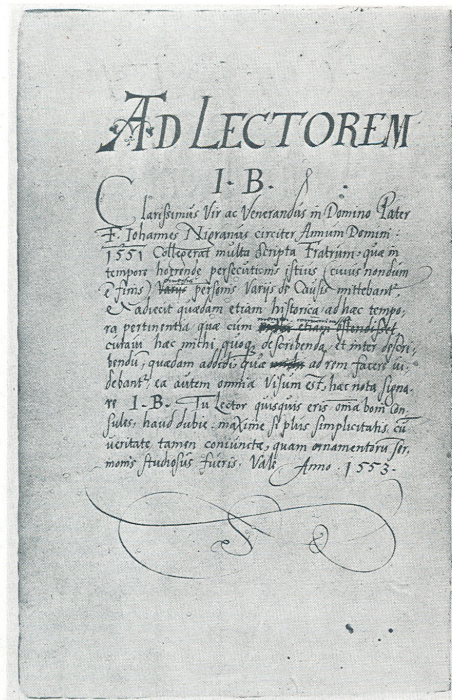 AD LECTOREM
I. B.
Clarissimus Vir ac Venerandus in Domino Pater
F. Johannes Nigranus circiter Annum Domini:
1551 Collegerat multa scripta Fratrum, quæ in
tempore horrendę persecutionis istius (cuius nondum
ē finis) personis Varijs & Causis mittebant,
& adiecit quædam etiam historica, ad hæc tempo,
ra pertinentia quæ cum
curaui hæc michi quoq, describenda, et inter descri,
bendū, quædam addidi, quæ ad rem facere ui,
debant, ea autem omnia Visum est, hac nota signa,
re I. B. Tu Lector quisquis eris oīa boni con,
sules, haud dubie, maxime si plus simplicitatis, cū
ueritate tamen coniunctæ, quam ornamentorū ser,
monis studiosus fueris. Vale Anno. 1553.